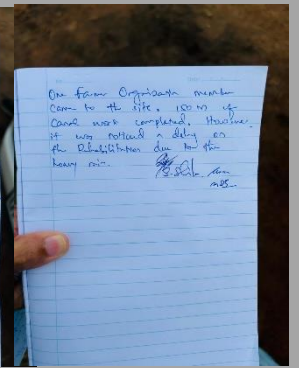 One Farmer Organisayn member
came to the site. 150 m of
Canal work completed. However
it was noticed a delay on
the Rehabilitation due to the
heavy rain.